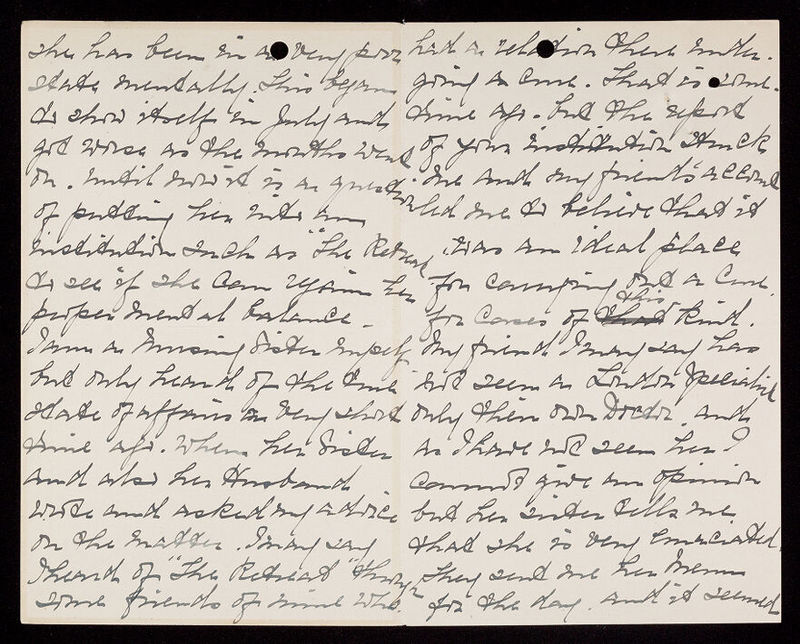 she has been in a very poor
state mentally. This began
to show itself in July and
got worse as the months went
on. Until now it is a question
of putting her into an
institution such as "The Retreat"
to see if she can regain her
proper mental balance.
I am a Nursing Sister myself,
but only heard of the true
state of affairs a very short
time ago. When her Sister
and also her Husband
wrote and asked my advice
on the matter. I may say
I heard of "The Retreat" through
some friends of mine who.
had a relation there under-
going a cure. That is some-
time ago. but the report
of your institution struck
me and my friend's account
led me to believe that it
was an ideal place
for carrying out a cure
for cases of that this kind.
My friend I may say has
not seen a London Specialist
only their own Doctor. and
as I have not seen her I
cannot give an opinion
but her sister tells me
that she is very emaciated.
They sent me her Menu
for the day. and it seemed